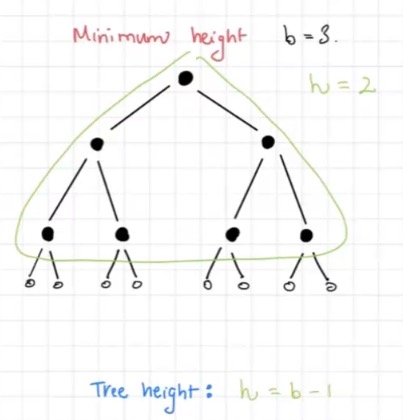 Minimum height b = 3.
h = 2
Tree height: h = b - 1